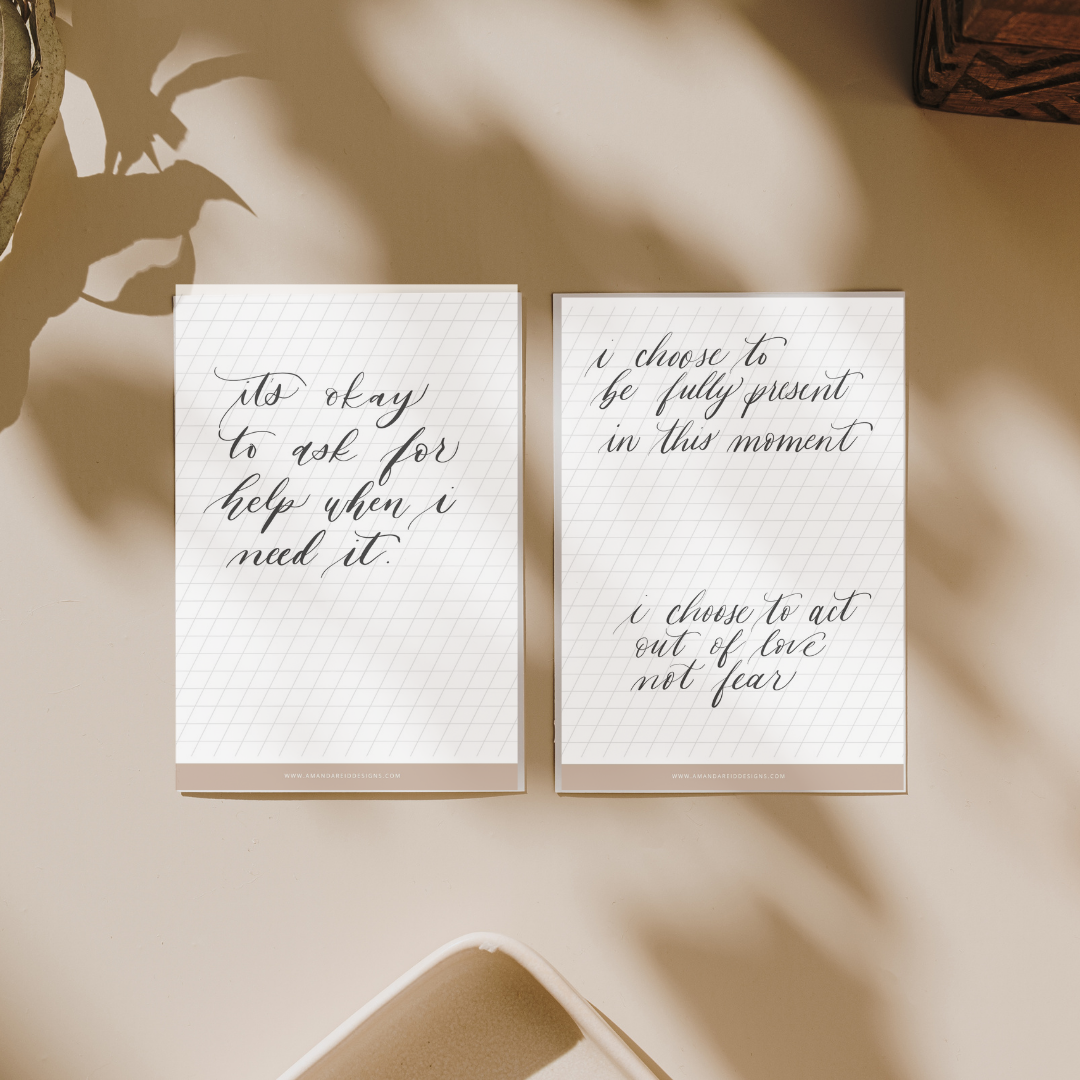 it's okay
to ask for
help when i
need it.
WWW.AMANDAREIDDESIGNS.COM
i choose to
be fully present
in this moment
i choose to act
out of love
not fear
WWW.AMANDAREIDDESIGNS.COM